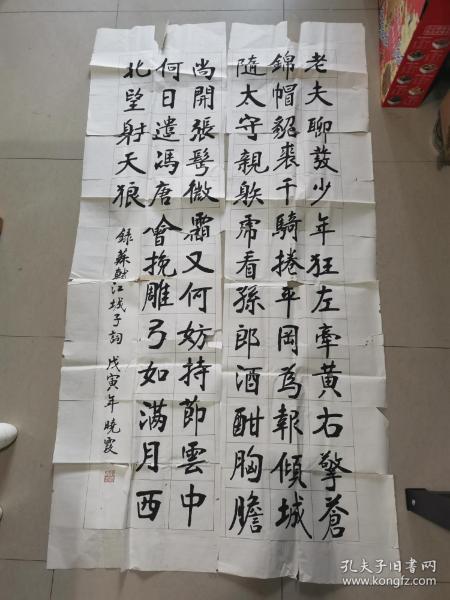 老夫聊發少年狂左牽黃右擎蒼
錦帽貂裘千騎捲平岡為報傾城
隨太守親射虎看孫郎酒酣胸膽
尚開張鬢微霜又何妨持節雲中
何日遣馮唐會挽雕弓如滿月西
北望射天狼
錄蘇軾江城子詞 戊寅年 曉霞
孔夫子旧书网
www.kongfz.com